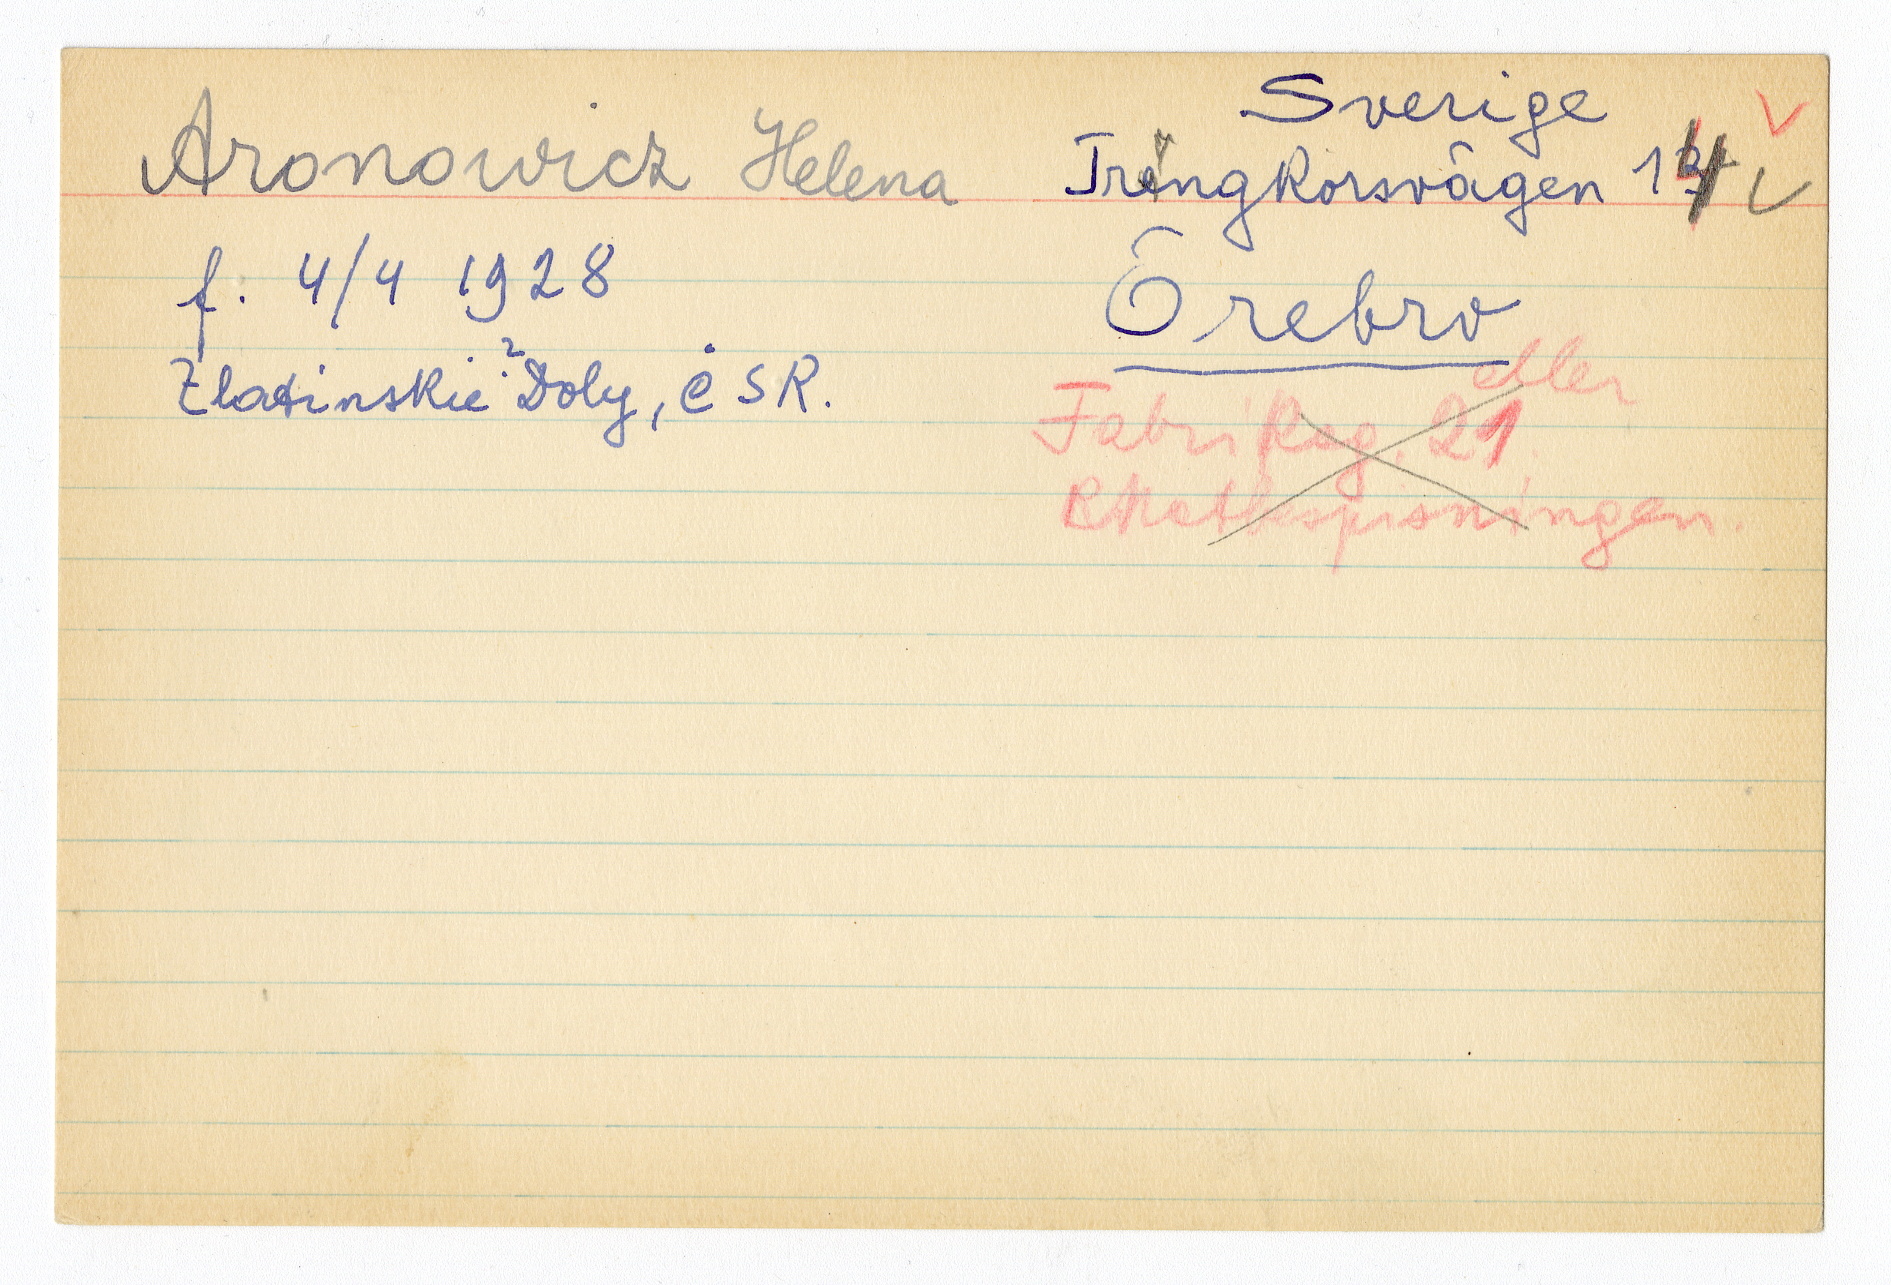 Aronowicz Helena
f. 4/4 1928
Zlatinskie ? Doly, ČSR.
Sverige
Trängkorsvägen
Örebro
eller
Fabriksg. 21.